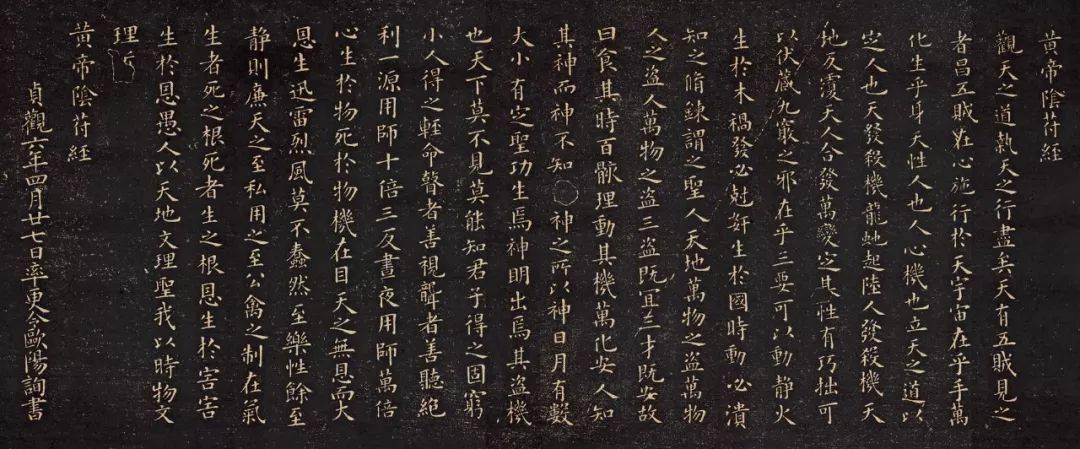 黃帝陰苻經
觀天之道執天之行盡矣天有五賊見之
者昌五賊在心施行於天宇宙在乎手萬
化生乎身天性人也人心機也立天之道以
定人也天發殺機龍虵起陸人發殺機天
地反覆天人合發萬變定其性有巧拙可
以伏藏九竅之邪在乎三要可以動靜火
生於木禍發必尅奸生於國時動必潰
知之脩鍊謂之聖人天地萬物之盜萬物
人之盜人萬物之盜三盜既宜三才既安故
曰食其時百骸理動其機萬化安人知
其神而神不知神之所以神日月有數
大小有定聖功生焉神明出焉其盜機
也天下莫不見莫能知君子得之固窮
小人得之輕命瞽者善視聾者善聽絕
利一源用師十倍三反晝夜用師萬倍
心生於物死於物機在目天之無恩而大
恩生迅雷烈風莫不蠢然至樂性餘至
靜則廉天之至私用之至公禽之制在氣
生者死之根死者生之根恩生於害害
生於恩愚人以天地文理聖我以時物文
理
黃帝陰苻經
貞觀六年四月廿七日率更令歐陽詢書